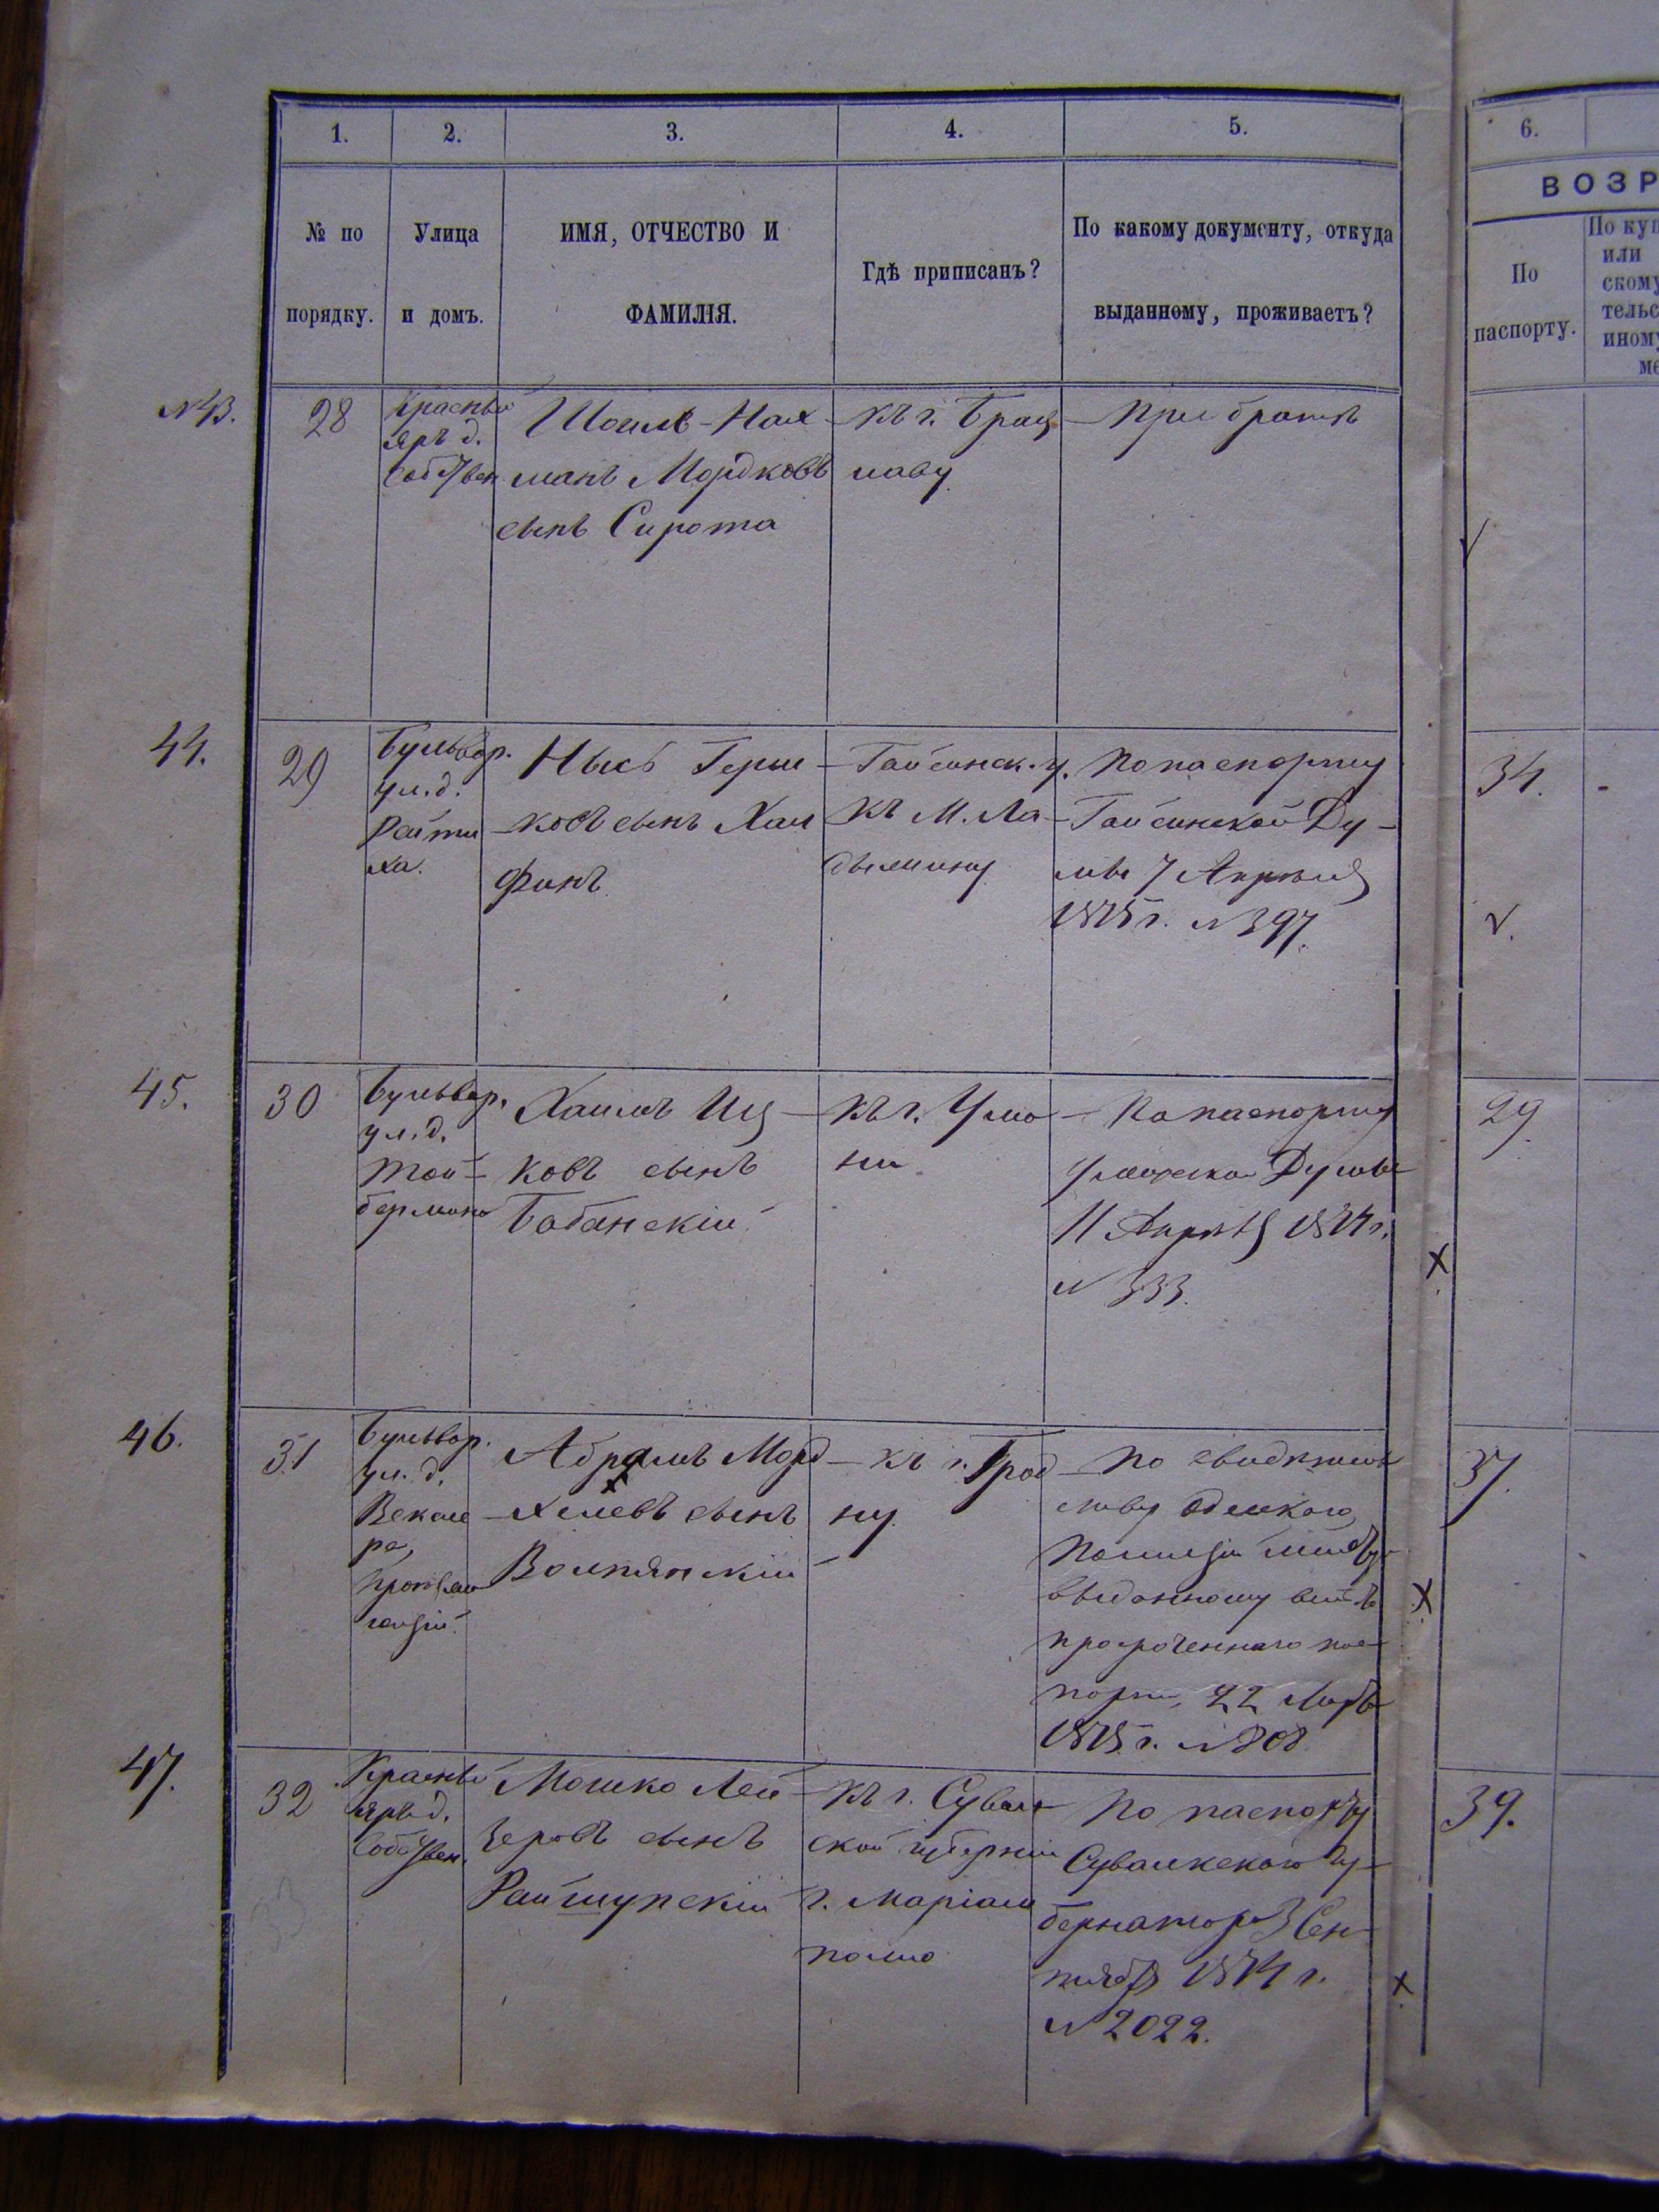 1. 2. 3. 4. 5. 6.
ВОЗР
№ по
порядку.
Улица
и домъ.
ИМЯ, ОТЧЕСТВО И
ФАМИЛІЯ.
Гдѣ приписанъ?
По какому документу, откуда
выданному, проживаетъ?
По
паспорту.
По куп
или
скому
тельс
иному
ме
№43.
28
Красный
яръ д.
собствен
Шоилъ-Нах
манъ Мордковъ
сынъ Сирота
къ г. Брац
лаву
При братѣ
44.
29
Бульвар.
ул. д.
ха.
Герш
ковъ сынъ Хаи
финъ
Гайсинск. у.
къ м. Ла
дыжину
По паспорту
Гайсинской Ду-
мы 7 Апрѣля
1875 г. №397.
34.
45.
30
Бульвар.
ул. д.
Той-
бермана
Хаимъ Иц
ковъ сынъ
Бабанскій
къ г. Ума
ни
По паспорту
Уманской Думы
11 Апрѣля 1874 г.
№ 333.
29.
46.
31
Бульвар.
ул. д.
Абрамъ Морд
хелевъ сынъ
Волпянскій
къ г. Грод
ну
По свидѣтель
ству
Полиціи
выданному
просроченнаго пас
порта, 22
1875 г. №808
37.
47.
32
Красный
яръ д.
Собствен.
Мошко Лей
зеровъ сынъ
Райшупскій
къ г. Сувалк
ской губерніи
г. Маріам
поль
По паспорту
Сувалкскаго Гу-
бернатора 3 Сен
тября 1874 г.
№ 2022.
39.